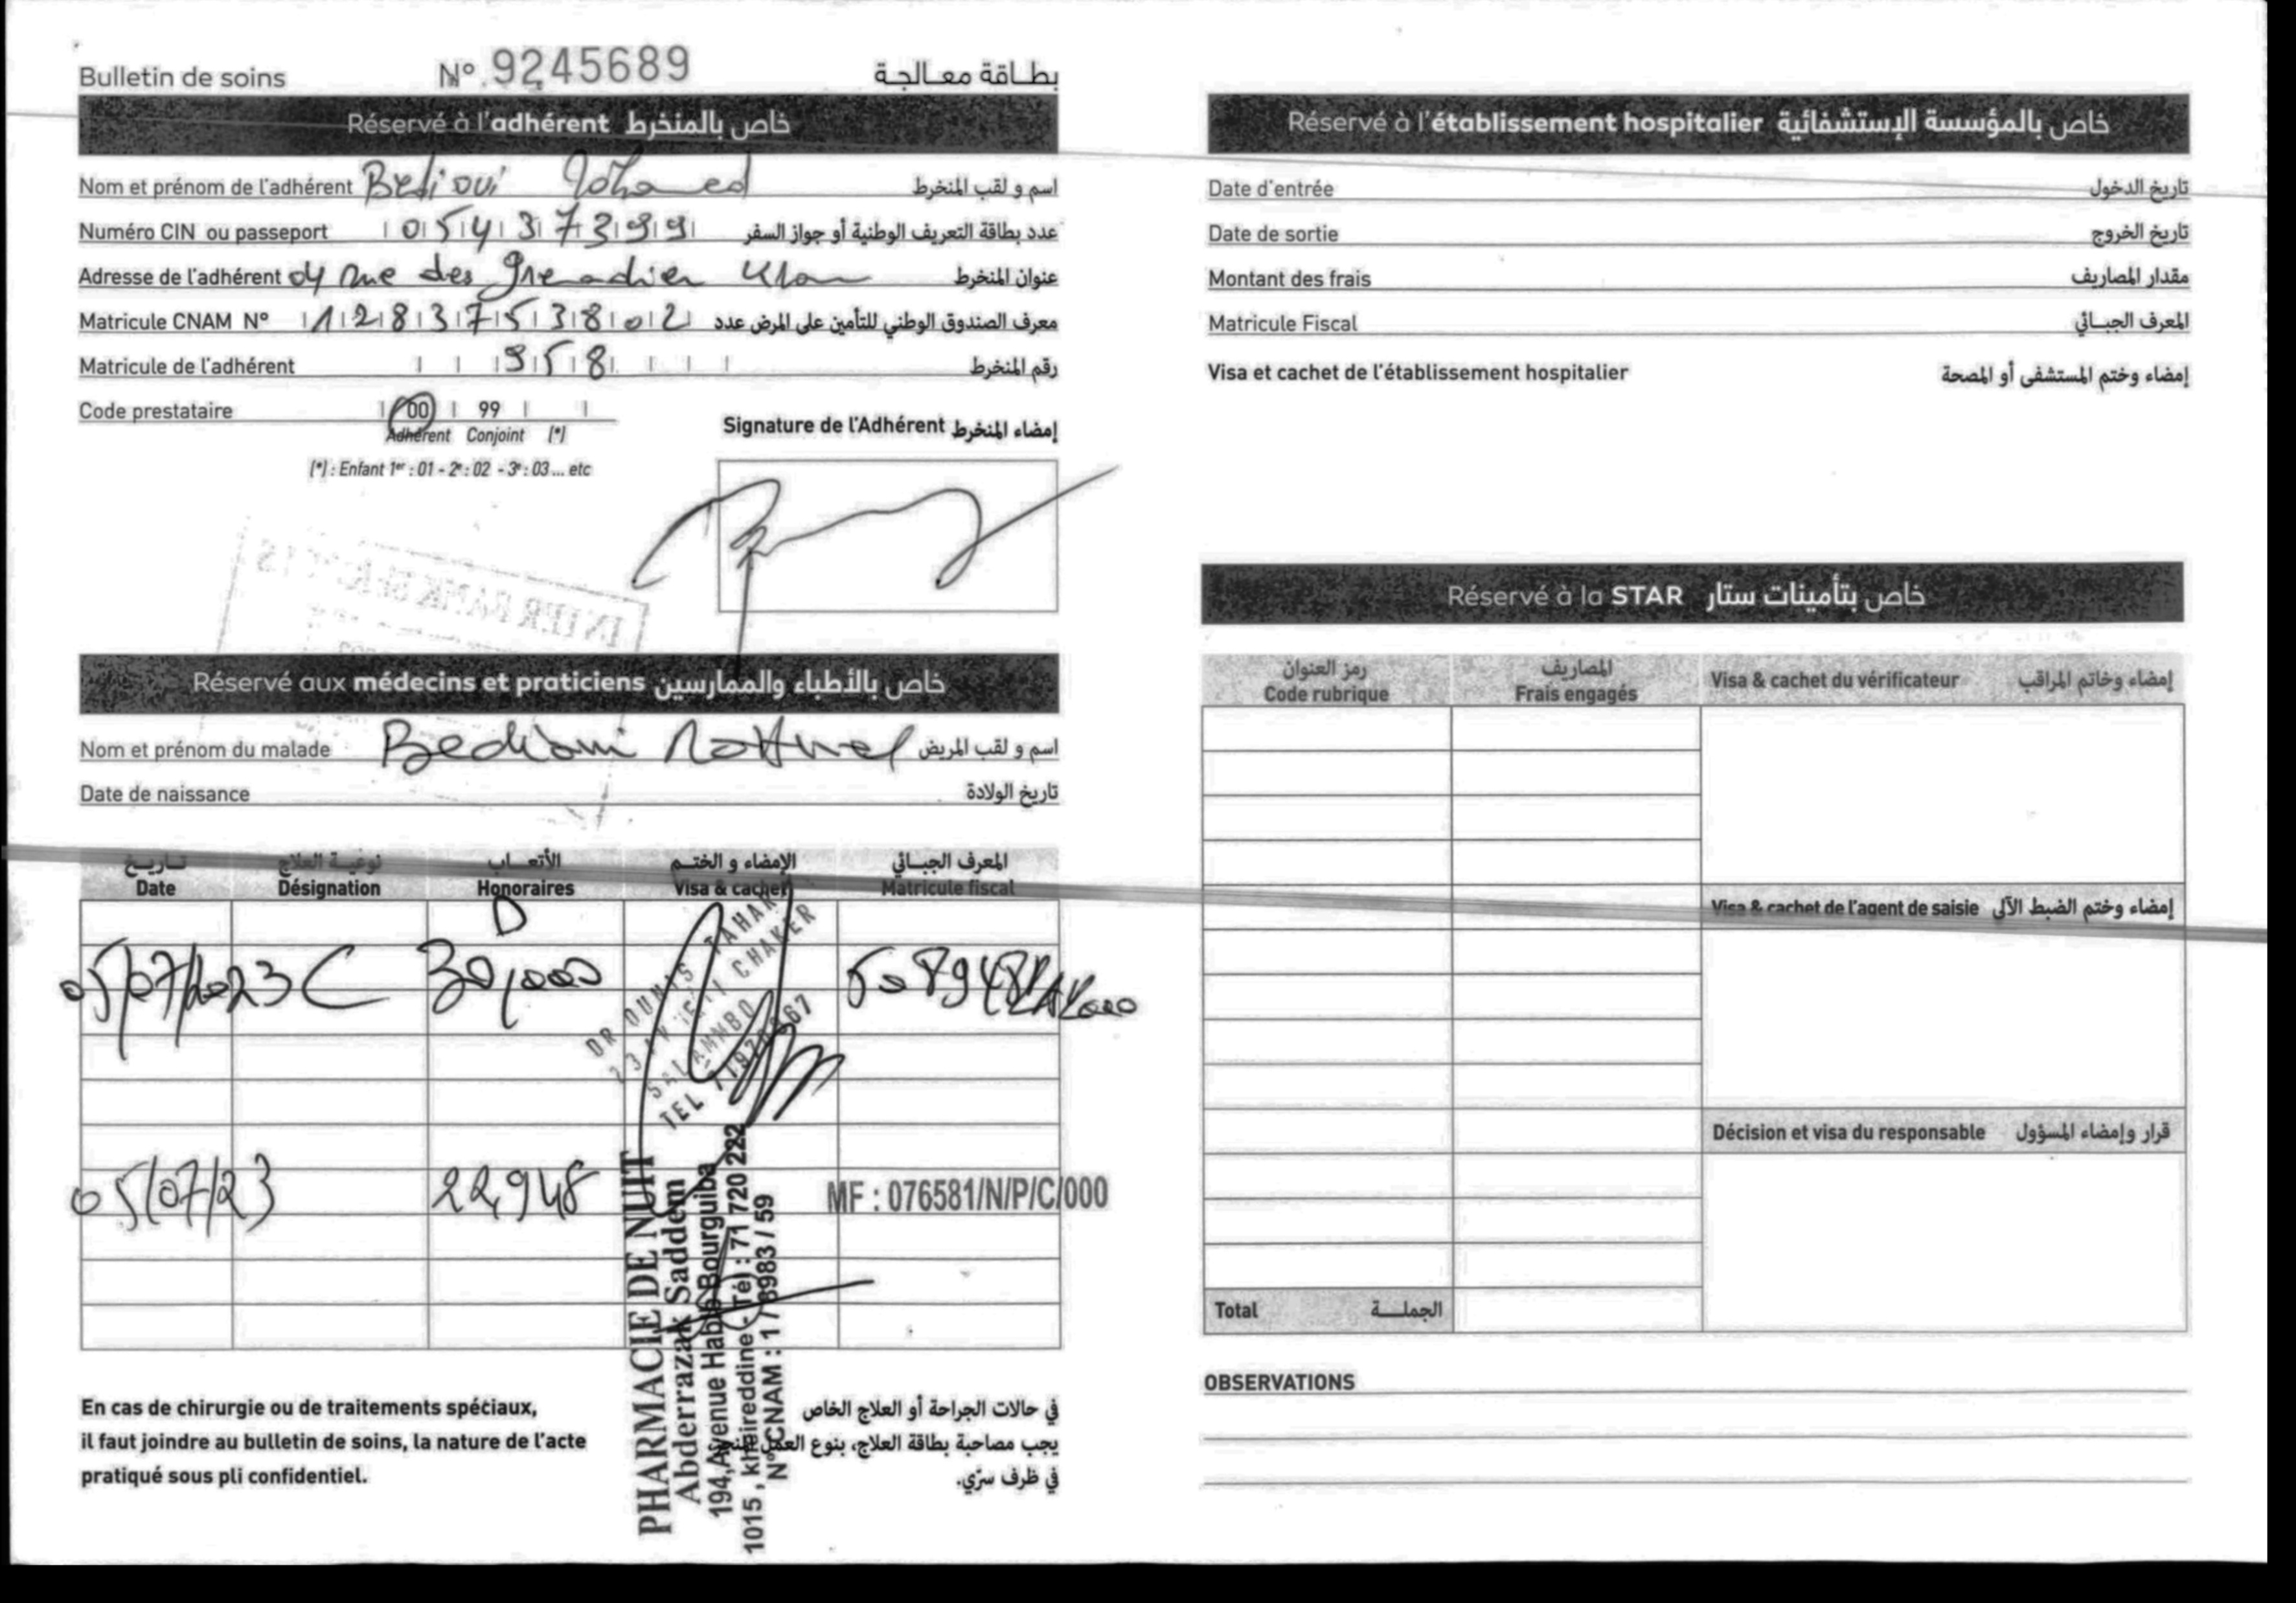 Bulletin de soins N° 9245689 بطاقة معالجة
Réservé à l'adhérent خاص بالمنخرط
Nom et prénom de l'adhérent Bedioui Mohamed اسم و لقب المنخرط
Numéro CIN ou passeport 05437399 عدد بطاقة التعريف الوطنية أو جواز السفر
Adresse de l'adhérent 04 rue des عنوان المنخرط
Matricule CNAM N° 1283753802 معرف الصندوق الوطني للتأمين على المرض عدد
Matricule de l'adhérent 958 رقم المنخرط
Code prestataire 00 99
Adhérent Conjoint (*)
(*) : Enfant 1er : 01 - 2e : 02 - 3e : 03 ... etc
Signature de l'Adhérent إمضاء المنخرط
INTER BANK SERVICES
Réservé aux médecins et praticiens خاص بالأطباء والممارسين
Nom et prénom du malade Bedioui اسم و لقب المريض
Date de naissance تاريخ الولادة
تاريخ نوعية العلاج الأتعاب الإمضاء و الختم المعرف الجبائي
Date Désignation Honoraires Visa & cachet Matricule fiscal
05/07/2023 C 30,000
DR OUNIS TAHAR
CHAKER
SALAMMBO
TEL
05/07/23 22,948 MF : 076581/N/P/C/000
PHARMACIE DE NUIT
Abderrazak Saddem
194, Avenue Habib Bourguiba
1015, kheireddine - Tél : 71 720 222
N° CNAM : 1 / 8983 / 59
En cas de chirurgie ou de traitements spéciaux,
il faut joindre au bulletin de soins, la nature de l'acte
pratiqué sous pli confidentiel.
في حالات الجراحة أو العلاج الخاص
يجب مصاحبة بطاقة العلاج، بنوع العمل
في ظرف سرّي.
Réservé à l'établissement hospitalier خاص بالمؤسسة الإستشفائية
Date d'entrée تاريخ الدخول
Date de sortie تاريخ الخروج
Montant des frais مقدار المصاريف
Matricule Fiscal المعرف الجبائي
Visa et cachet de l'établissement hospitalier إمضاء وختم المستشفى أو المصحة
Réservé à la STAR خاص بتأمينات ستار
رمز العنوان المصاريف
Code rubrique Frais engagés Visa & cachet du vérificateur إمضاء وخاتم المراقب
Visa & cachet de l'agent de saisie إمضاء وختم الضبط الآلي
Décision et visa du responsable قرار وإمضاء المسؤول
Total الجملة
OBSERVATIONS